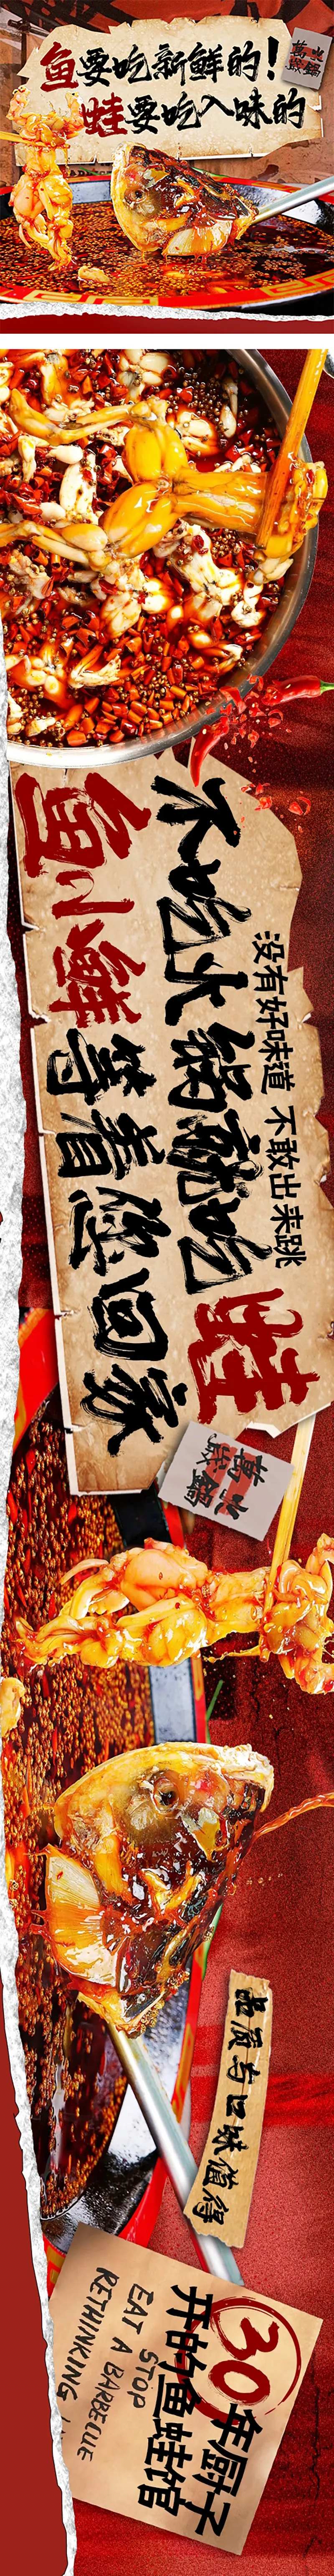 鱼要吃新鲜的!
蛙要吃入味的
萬歲
火鍋
没有好味道 不敢出来跳
不吃火锅就吃蛙
鱼小鲜等着您回家
萬歲
火鍋
品质与口味值得
30年厨子
开的鱼蛙馆
STOP
EAT A BARBECUE
RETHINKING